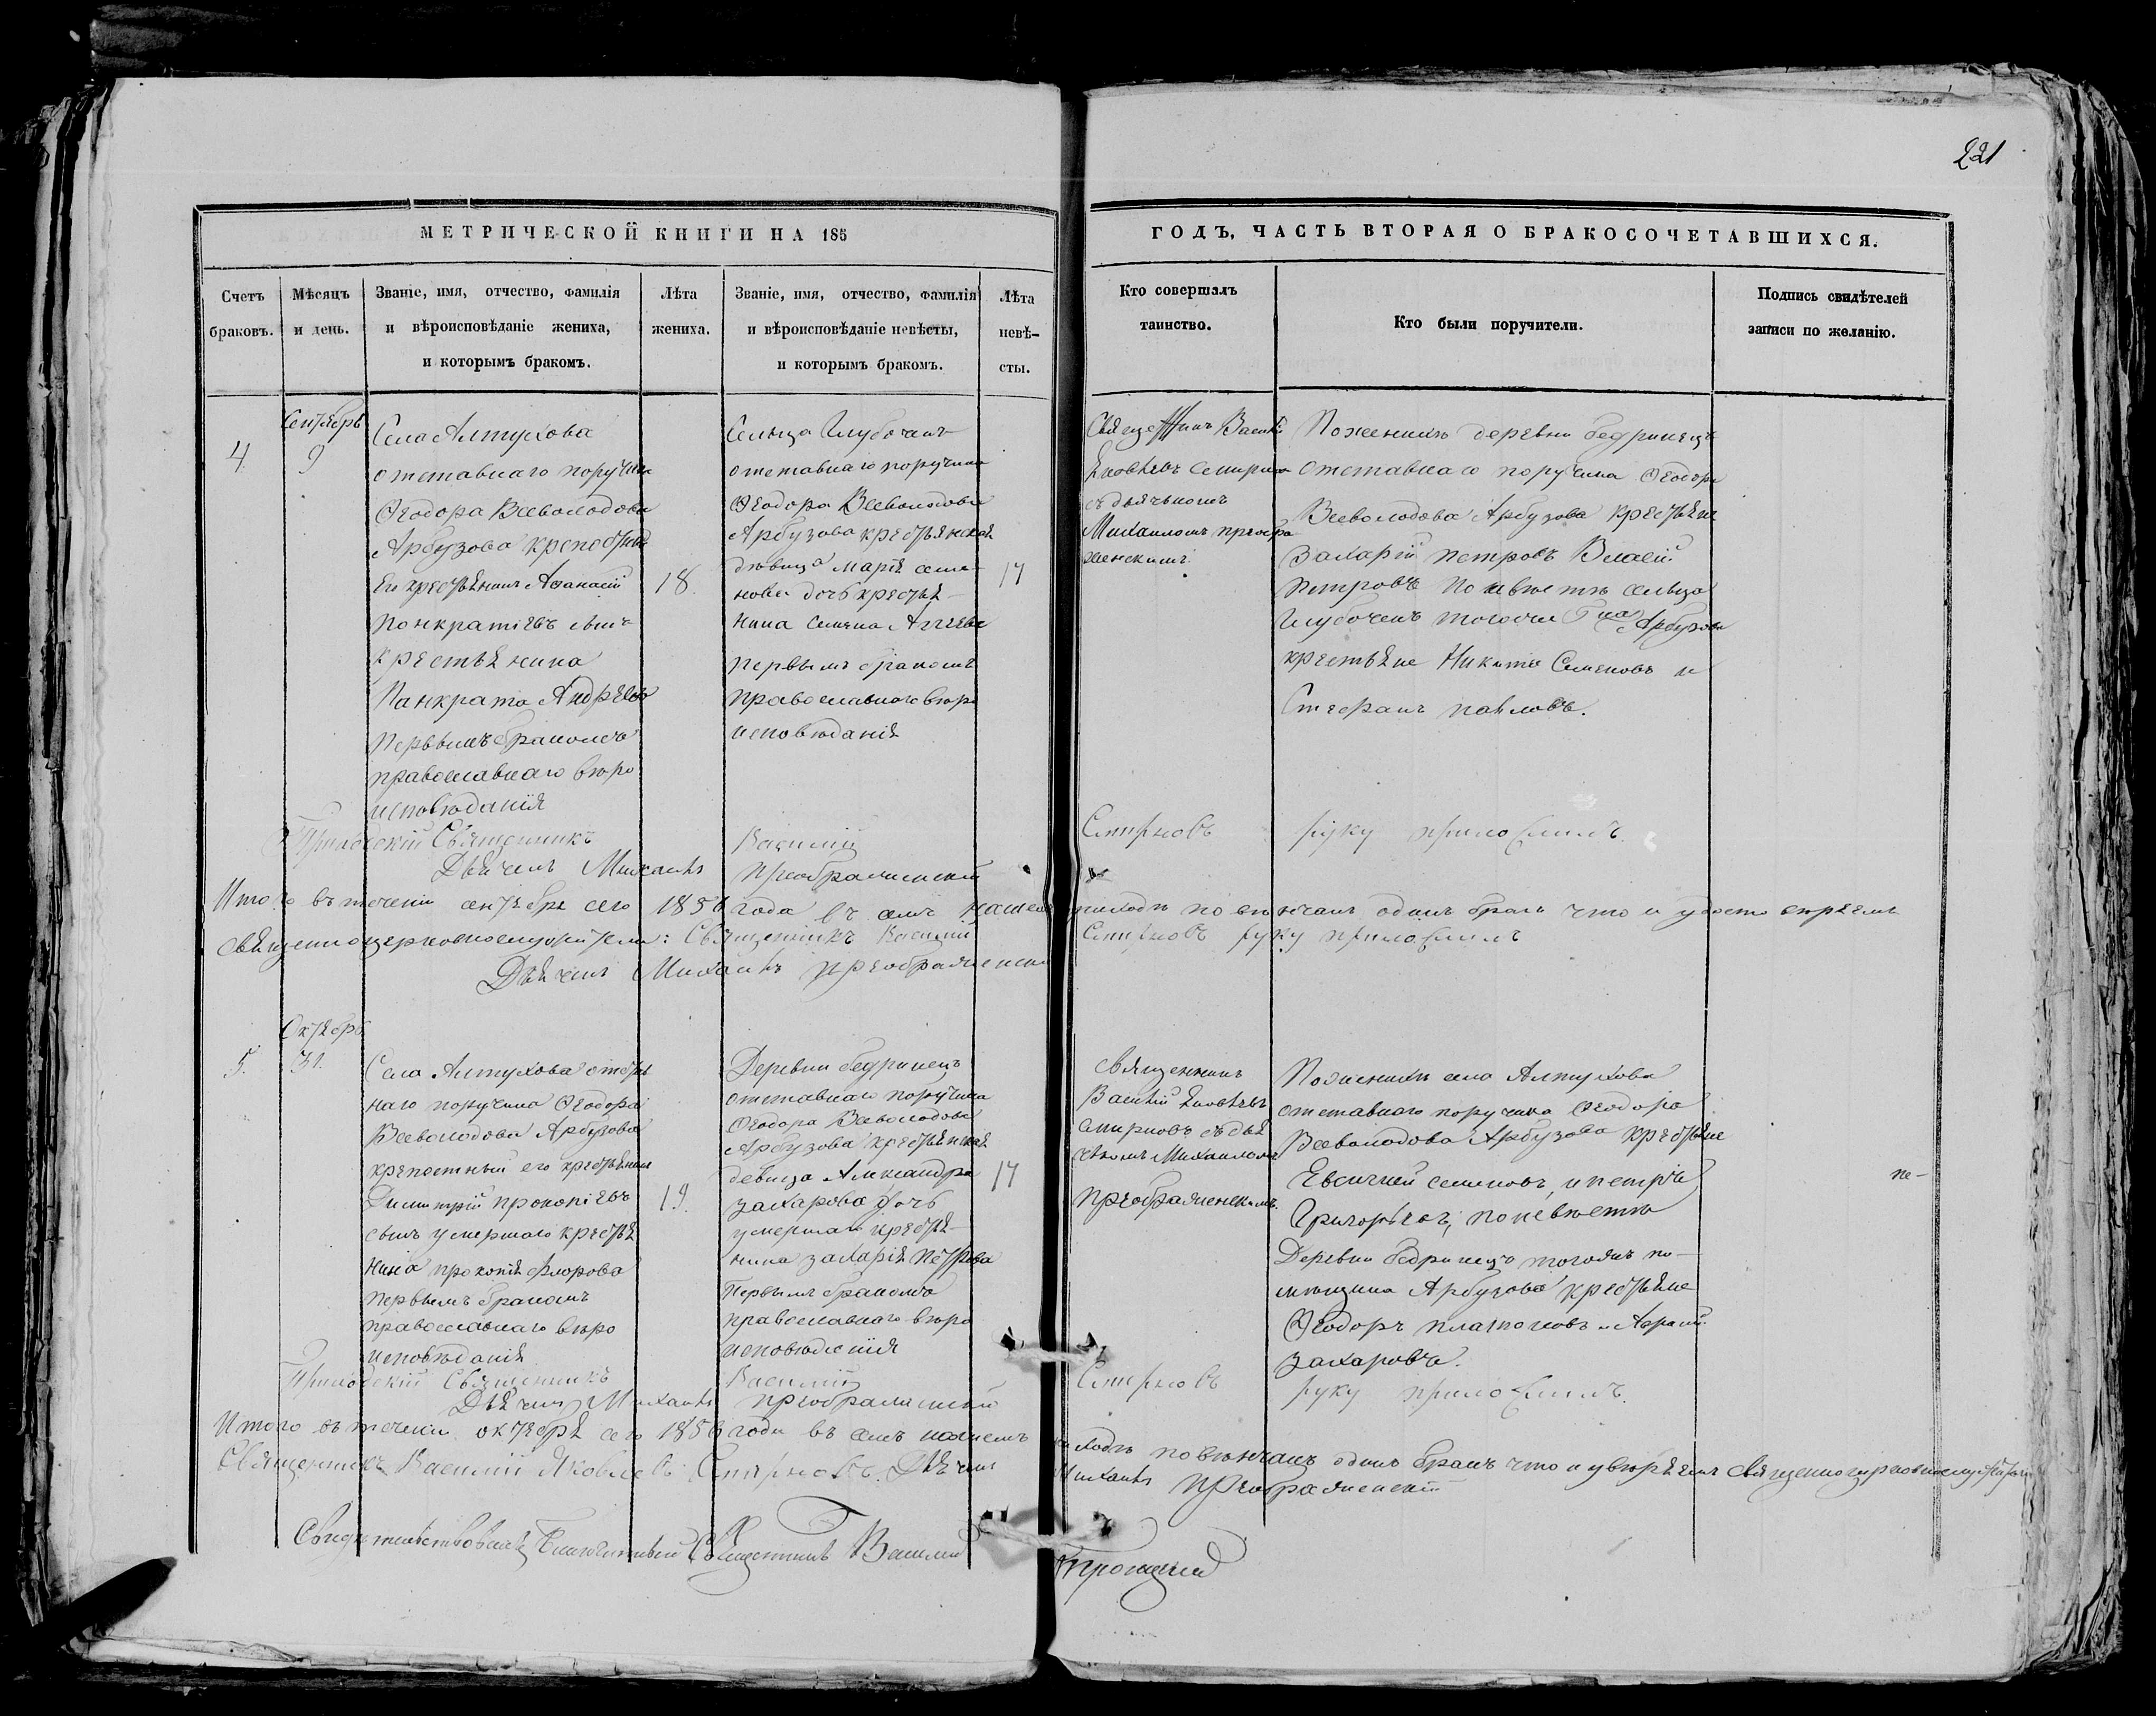 221
МЕТРИЧЕСКОЙ КНИГИ НА 185
ГОДЪ, ЧАСТЬ ВТОРАЯ О БРАКОСОЧЕТАВШИХСЯ.
Счетъ
браковъ.
Мѣсяцъ
и день.
Званіе, имя, отчество, фамилія
и вѣроисповѣданіе жениха,
и которымъ бракомъ.
Лѣта
жениха.
Званіе, имя, отчество, фамилія
и вѣроисповѣданіе невѣсты,
и которымъ бракомъ.
Лѣта
невѣ-
сты.
Кто совершалъ
таинство.
Кто были поручители.
Подпись свидѣтелей
записи по желанію.
4.
Сентябрь
9
Села Алтухова
отставнаго поручика
Ѳеодора Всеволодова
Арбузова крепостный
Его крестьянинъ Аѳанасій
Понкратіевъ сынъ
крестьянина
Панкрата Андреева
первымъ бракомъ
православнаго вѣро
исповѣданія
18.
Сельца Глубочекъ
отставнаго поручика
Ѳеодора Всеволодова
Арбузова крестьянская
дѣвица Марія Семе-
нова дочь крестья-
нина Семена
первымъ бракомъ
православнаго вѣро
исповѣданія
17
Священникъ Василій
Яковлевъ Смирновъ
съ дьячькомъ
Михаиломъ преобра
женскимъ.
По женихѣ деревни бедринецъ
отставнаго поручика Ѳеодора
Всеволодова Арбузова крестьяне
Захарій петровъ Власій
петровъ по невѣсте сельца
Глубочекъ тогоже Гна Арбузова
крестьяне Никита Семеновъ и
Стефанъ павловъ.
Приходскій Священникъ Василій Смирновъ руку приложилъ.
Дьячекъ Михаилъ преображенскій
Итого въ теченіи сентября сего 1856 года въ семъ нашемъ приходѣ повѣнчанъ одинъ бракъ что и удостовѣряемъ
священноцерковнослужители: Священникъ Василій Смирновъ руку приложилъ
Дьячекъ Михаилъ преображенскій
5.
Октябрь
31.
Села Алтухова отстав
наго поручика Ѳеодора
Всеволодова Арбузова
крепостный его крестьянинъ
Димитрій прокопіевъ
сынъ умершаго крестья
нина прокопія Флорова
первымъ бракомъ
православнаго вѣро
исповѣданія
19.
Деревни бедринецъ
отставнаго поручика
Ѳеодора Всеволодова
Арбузова крестьянская
девица Александра
захарова дочь
умершаго крестья-
нина захарія Петрова
первымъ бракомъ
православнаго вѣро
исповѣданія
17
священникъ
Василій Яковлевъ
смирновъ съ дья
чькомъ Михаиломъ
преображенскимъ.
По женихѣ села Алтухова
отставнаго поручика Ѳеодора
Всеволодова Арбузова крестьяне
Семеновъ, и петръ
Григорьевъ, по невѣсте
Деревни бедринецъ тогожъ по-
мѣщика Арбузова крестьяне
Ѳеодоръ платоновъ и
захаровъ.
Приходскій Священникъ Василій Смирновъ руку приложилъ.
Дьячекъ Михаилъ преображенскій
Итого въ теченіи октября сего 1856 года въ семъ нашемъ приходѣ повѣнчанъ одинъ бракъ что и увѣряемъ священноцерковнослужители
Священникъ Василій Яковлевъ Смирновъ. Дьячекъ Михаилъ преображенскій
Свидѣтельствовалъ Благочинный Священникъ Василій Троицкій